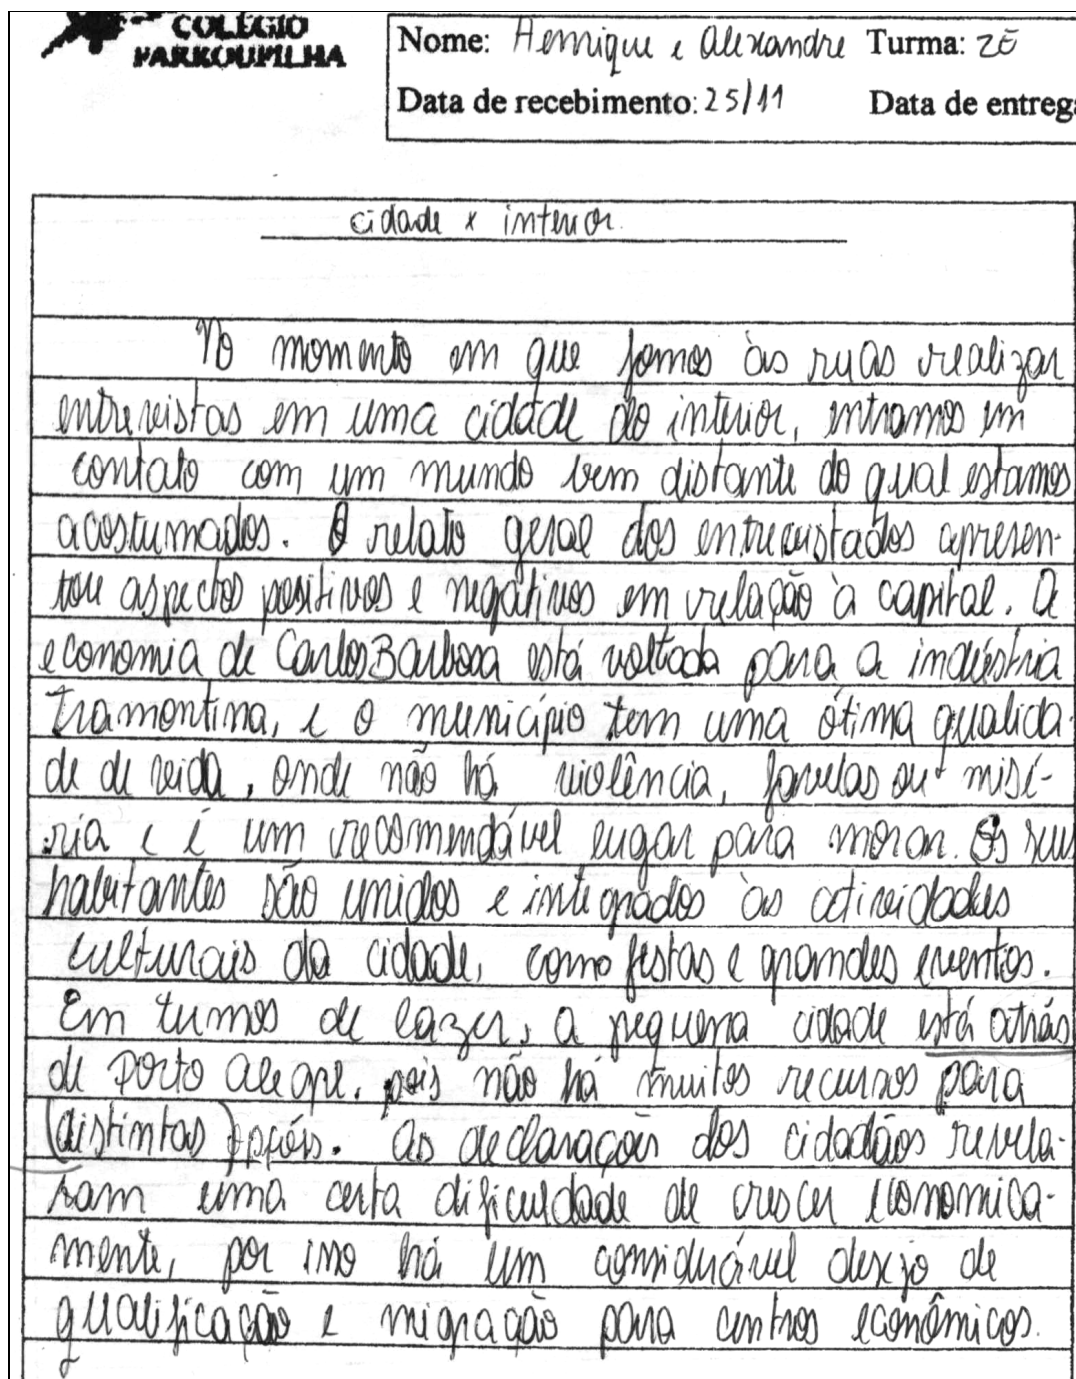 COLÉGIO
FARROUPILHA
Nome: Henrique e Alexandre Turma: 2E
Data de recebimento: 25/11 Data de entrega
cidade x interior.
No momento em que fomos às ruas realizar
entrevistas em uma cidade do interior, entramos em
contato com um mundo bem distante do qual estamos
acostumados. O relato geral dos entrevistados apresen-
tou aspectos positivos e negativos em relação à capital. A
economia de Carlos Barbosa está voltada para a indústria
Tramontina, e o município tem uma ótima qualida-
de de vida, onde não há violência, favelas ou misé-
ria e é um recomendável lugar para morar. Os seus
habitantes são unidos e integrados às atividades
culturais da cidade, como festas e grandes eventos.
Em termos de lazer, a pequena cidade está atrás
de Porto Alegre, pois não há muitos recursos para
(distintas) opções. As declarações dos cidadãos revela-
ram uma certa dificuldade de crescer economica-
mente, por isso há um considerável desejo de
qualificação e migração para centros econômicos.